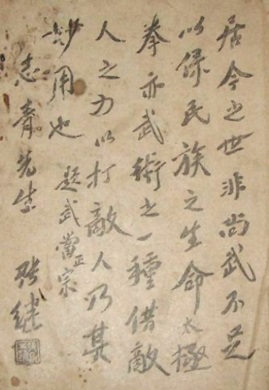 居今之世非尚武不足
以保民族之生命太極
拳亦武術之一種借敵
人之力以打敵人乃其
妙用也
題武當正宗
志青先生
張繼